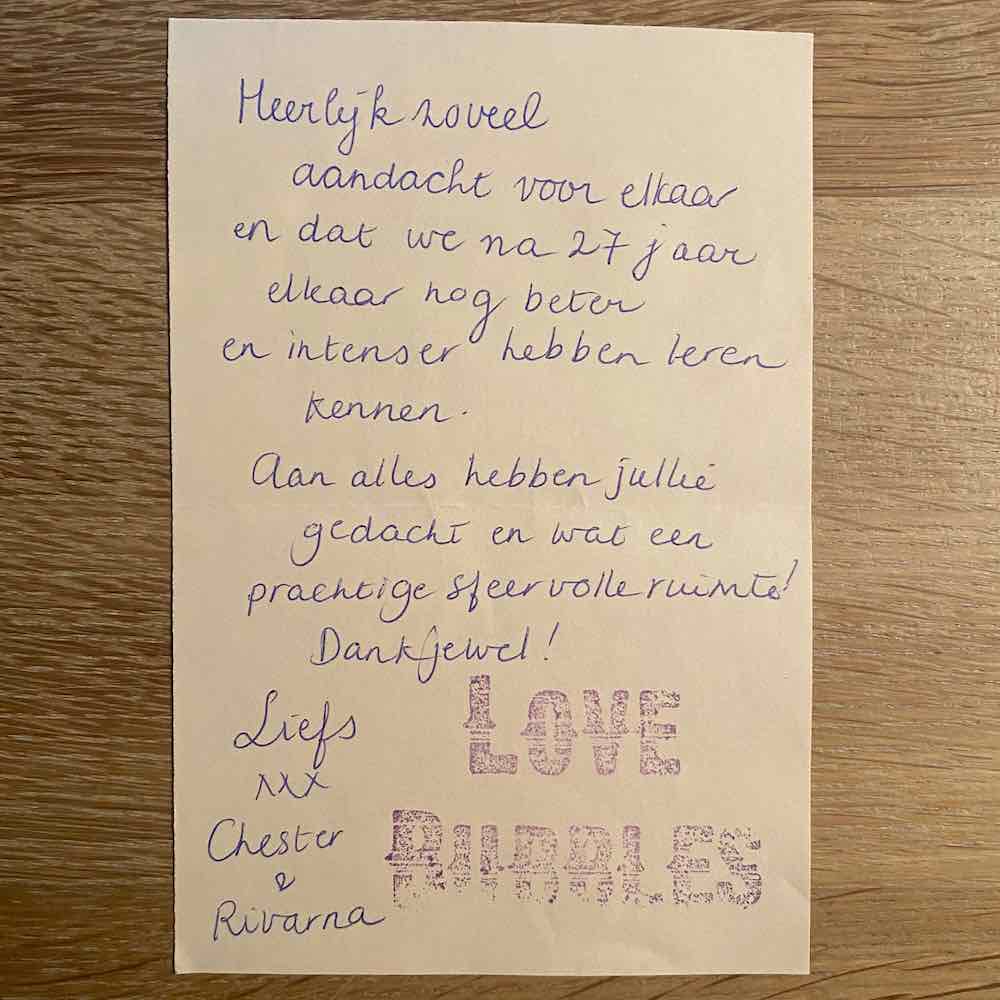 Heerlijk zoveel
aandacht voor elkaar
en dat we na 27 jaar
elkaar nog beter
en intenser hebben leren
kennen.
Aan alles hebben jullie
gedacht en wat een
prachtige sfeervolle ruimte!
Dankjewel!
Liefs
xxx
Chester
&
Rivarna
LOVE
BUBBLES